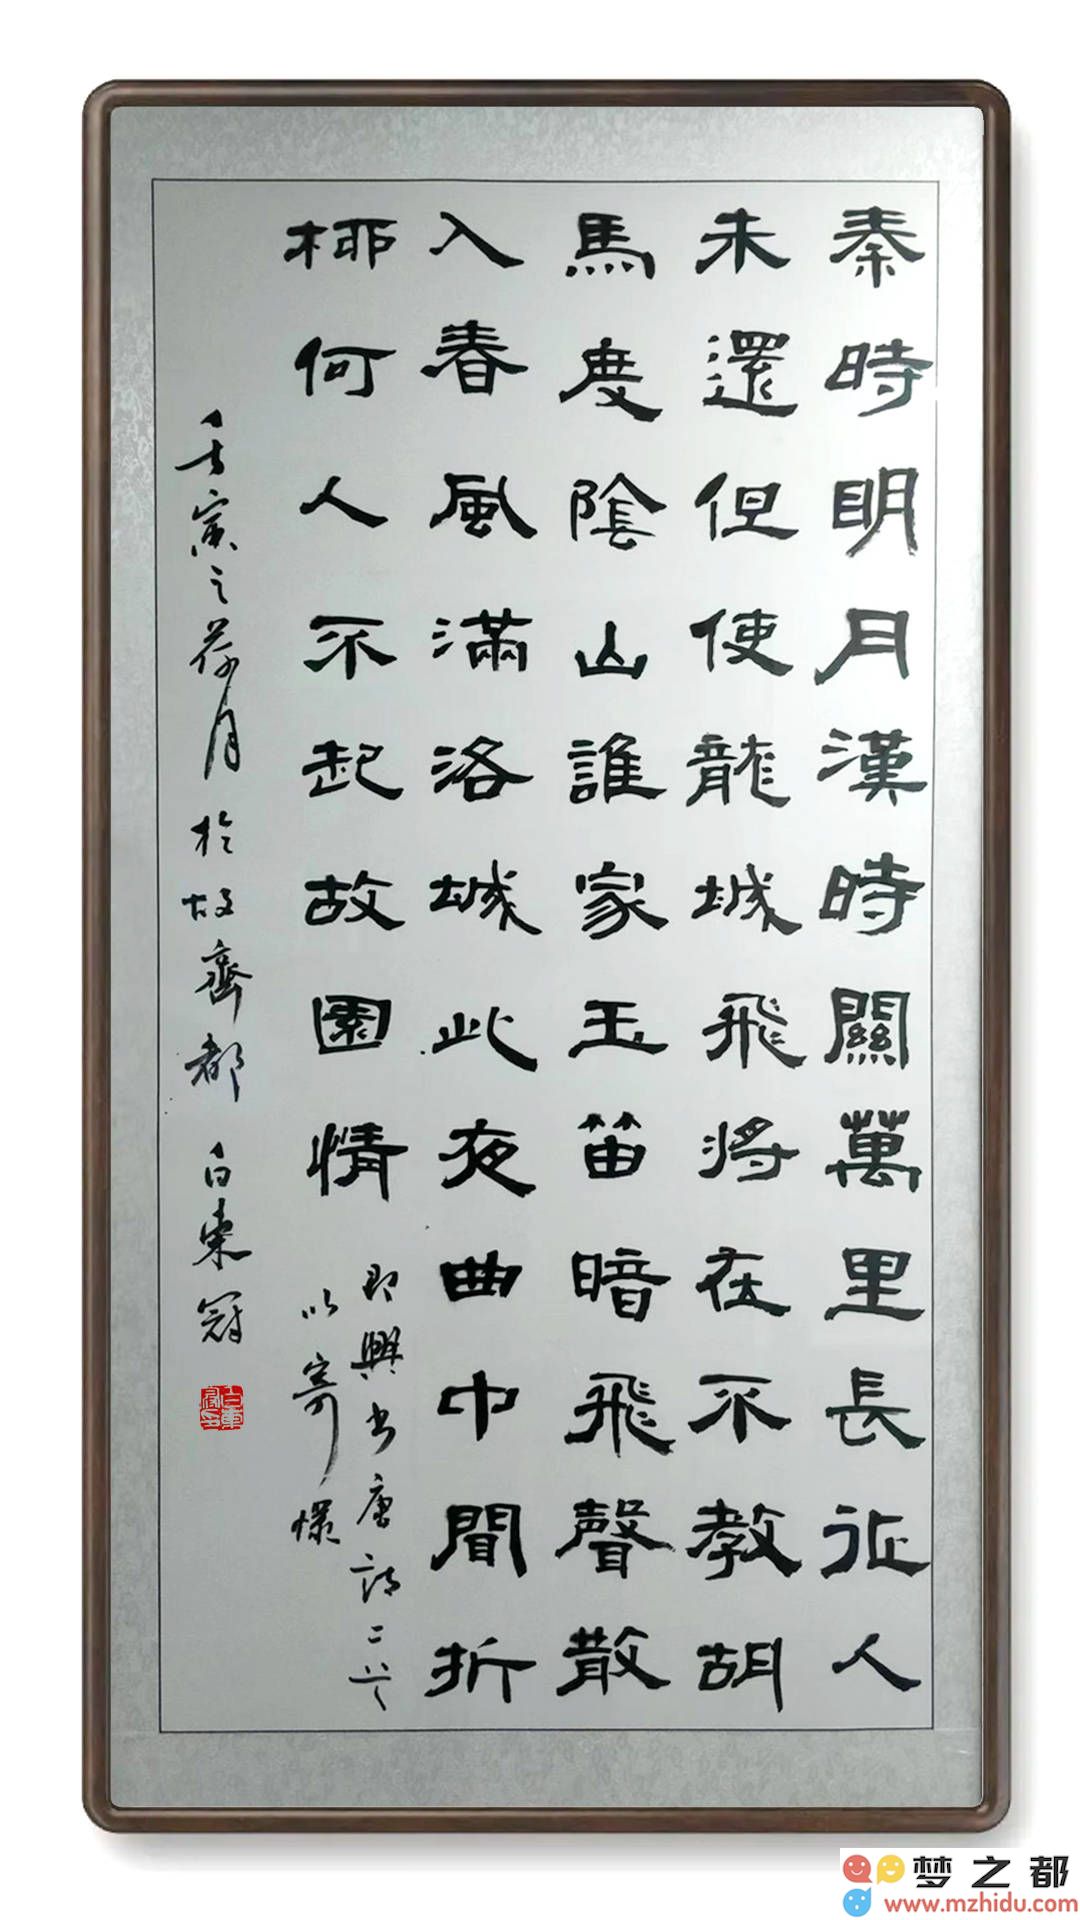 秦時明月漢時關萬里長征人
未還但使龍城飛將在不教胡
馬度陰山誰家玉笛暗飛聲散
入春風滿洛城此夜曲中聞折
柳何人不起故園情
即興書唐詩二首
以寄懷
壬寅之荷月於故齊都 白東冠
梦之都
www.mzhidu.com